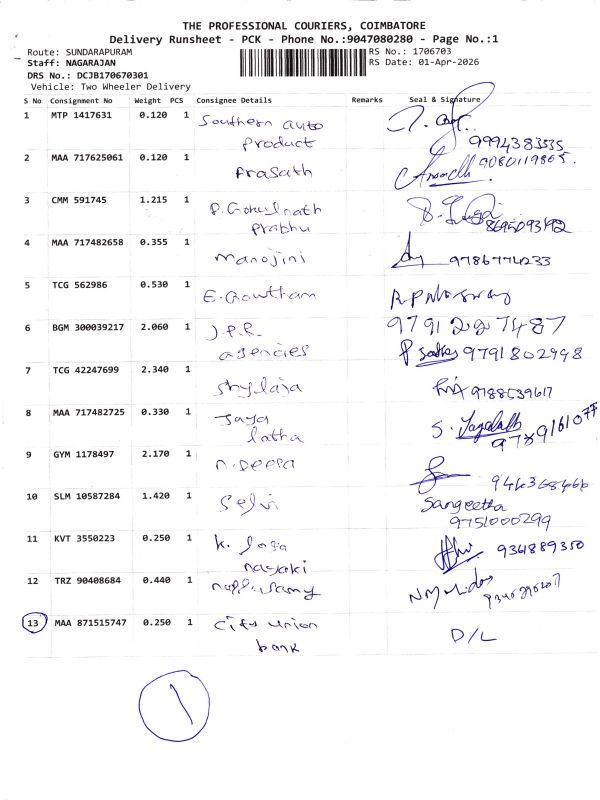 THE PROFESSIONAL COURIERS, COIMBATORE
Delivery Runsheet - PCK - Phone No.:9047080280 - Page No.:1
Route: SUNDARAPURAM
RS No.: 1706703
Staff: NAGARAJAN
RS Date: 01-Apr-2026
DRS No.: DCJB170670301
Vehicle: Two Wheeler Delivery
S No Consignment No Weight PCS Consignee Details Remarks Seal & Signature
1 MTP 1417631 0.120 1 Southern auto
product
9994383535
2 MAA 717625061 0.120 1 Prasath
9080119865.
3 CMM 591745 1.215 1 P.Gokulnath
prabhu
4 MAA 717482658 0.355 1 manojini 9786774233
5 TCG 562986 0.530 1 E.Gowtham
6 BGM 300039217 2.060 1 J.P.R.
agencies 9791802998
7 TCG 42247699 2.340 1 Shylaja 9788539617
8 MAA 717482725 0.330 1 Jaya
latha
9 GYM 1178497 2.170 1 N.Deepa
10 SLM 10587284 1.420 1 Selvi Sangeetha
9751000299
11 KVT 3550223 0.250 1 K. Joga
nayaki 9361889350
12 TRZ 90408684 0.440 1
13 MAA 871515747 0.250 1 City union
bank D/L
1